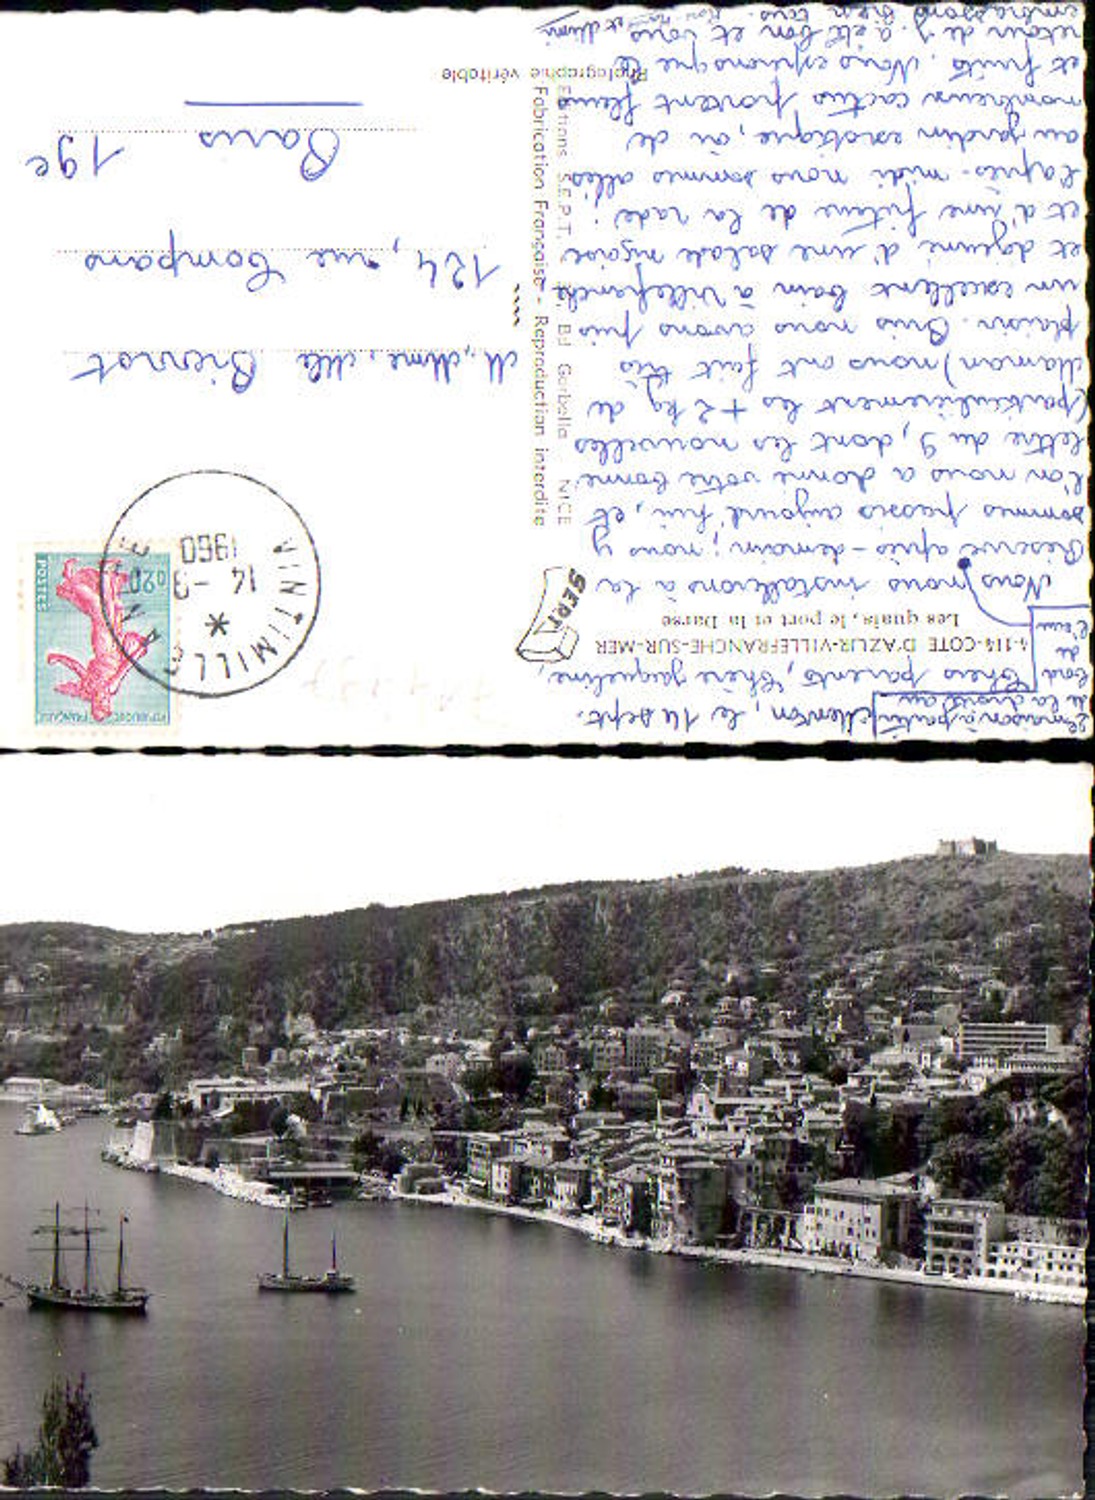 Menton, le 14 sept.
Chers parents, Chère Jacqueline,
4-114-COTE D'AZUR-VILLEFRANCHE-SUR-MER
Les quais, le port et la Darse
Nous nous installons à la
Réserve après-demain ; nous y
sommes passés aujourd'hui, et
l'on nous a donné votre bonne
lettre du 9, dont les nouvelles
(particulièrement les + 2 kg de
Maman) nous ont fait très
plaisir. Puis nous avons pris
un excellent bain à Villefranche
et déjeuné d'une salade niçoise
et d'une friture de la rade ;
l'après-midi nous sommes allés
au jardin exotique, où de
nombreux cactus portent fleurs
et fruits. Nous espérons que le
retour de J. a été bon et vous
embrassons bien tous.
2e maison à partir
de la droite au
bord
de
l'eau
SEPT
Editions S.E.P.T. Bd Gorbella NICE
Fabrication Française - Reproduction interdite
Photographie véritable
REPUBLIQUE FRANÇAISE
0,20
POSTES
VINTIMILLE
14 - 9
1960
M, Mme, Mlle Biennot
124, rue Compans
Paris 19e